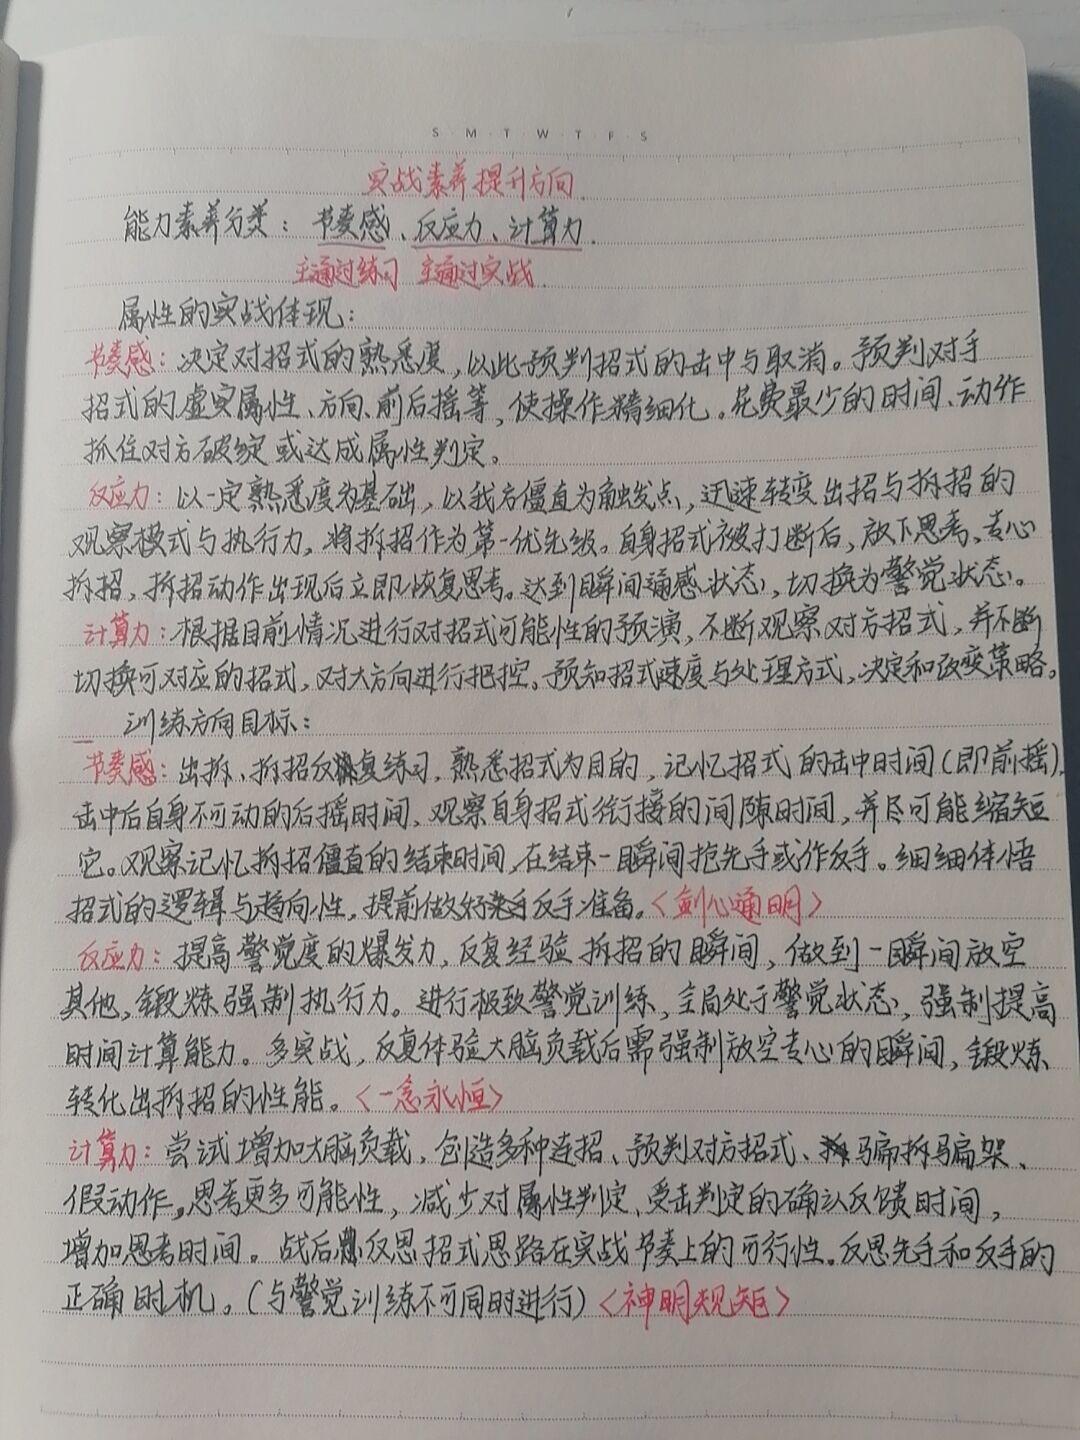 S M T W T F S
实战素养提升方向
能力素养分类：节奏感、反应力、计算力.
主通过练习 主通过实战.
属性的实战体现：
节奏感：决定对招式的熟悉度，以此预判招式的击中与取消。预判对手
招式的虚实属性、方向、前后摇等，使操作精细化。花费最少的时间、动作
抓住对方破绽或达成属性判定。
反应力：以一定熟悉度为基础，以我方僵直为触发点，迅速转变出招与拆招的
观察模式与执行力，将拆招作为第一优先级。自身招式被打断后，放下思考、专心
拆招，拆招动作出现后立即恢复思考。达到瞬间通感状态，切换为警觉状态。
计算力：根据目前情况进行对招式可能性的预演，不断观察对方招式，并不断
切换可对应的招式，对大方向进行把控。预知招式速度与处理方式，决定和改变策略。
训练方向目标：
节奏感：出拆、拆招反复练习，熟悉招式为目的，记忆招式的击中时间（即前摇），
击中后自身不可动的后摇时间，观察自身招式衔接的间隙时间，并尽可能缩短
它。观察记忆拆招僵直的结束时间，在结束一瞬间抢先手或作反手。细细体悟
招式的逻辑与趋向性，提前做好反手准备。〈剑心通明〉
反应力：提高警觉度的爆发力，反复经验拆招的瞬间，做到一瞬间放空
其他，锻炼强制执行力。进行极致警觉训练，全局处于警觉状态，强制提高
时间计算能力。多实战，反复体验大脑负载后需强制放空专心的瞬间，锻炼
转化出拆招的性能。〈一念永恒〉
计算力：尝试增加大脑负载，创造多种连招、预判对方招式、骗拆骗架、
假动作，思考更多可能性，减少对属性判定、受击判定的确认反馈时间，
增加思考时间。战后反思招式思路在实战节奏上的可行性。反思先手和反手的
正确时机。（与警觉训练不可同时进行）〈神明规矩〉